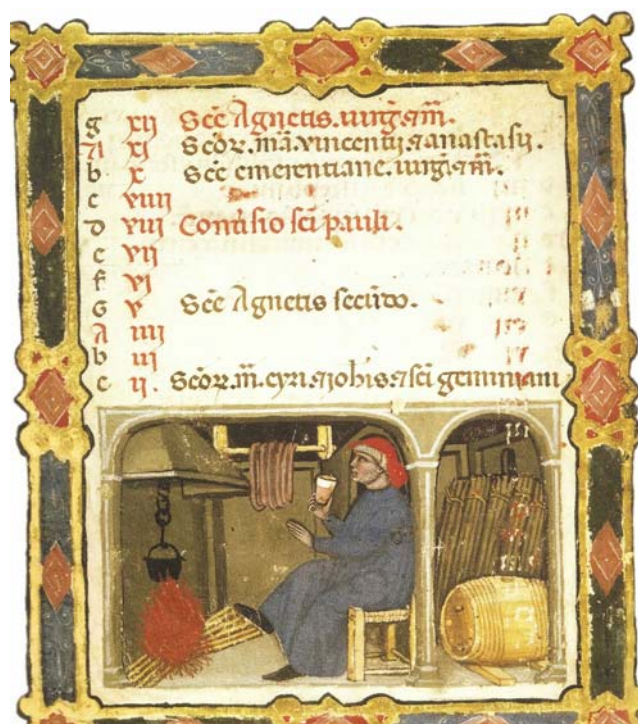 g xij Sc̄e Agnetis. uirg̃. ꝛ m̃.
A xj Scōꝝ. m̃. vincentij ꝛ anastasij.
b x Sc̄e emerentiane. uirg̃. ꝛ m̃.
c viiij
d viij Conũsio sc̄i pauli.
e vij
f vj
G v Sc̄e Agnetis secūdo.
A iiij
b iij
c ij. Scōꝝ. m̃. cyri. ꝛ ioh̄is. ꝛ sc̄i geminiani